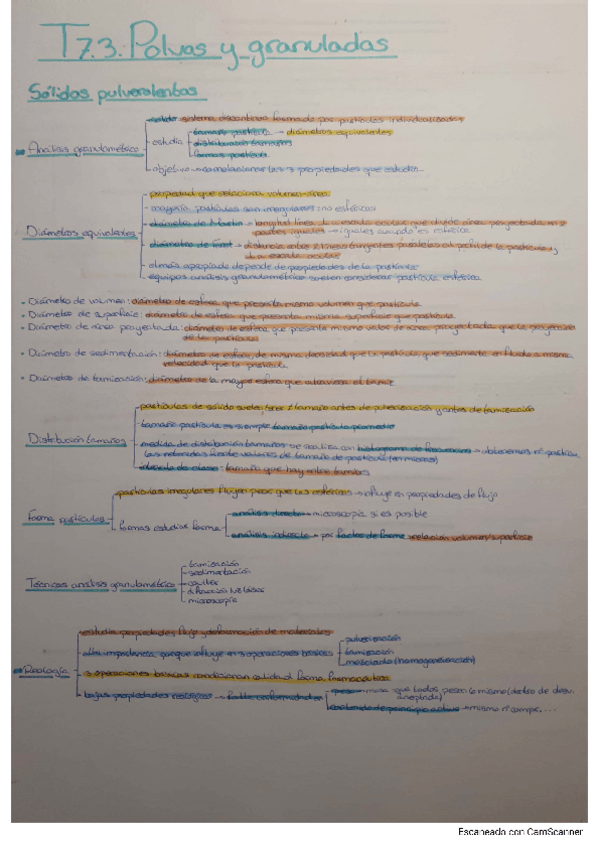 T7.3: Polvos y granulados
Sólidos pulverulentos
sólido sistema discontinuo formado por partículas individualizadas
Análisis granulométrico
estudia
tamaño partícula → diámetros equivalentes
distribución tamaños
forma partícula
objetivo → correlacionar las 3 propiedades que estudia.
Diámetros equivalentes
propiedad que relaciona volumen
mayoría partículas son irregulares: no esféricas
diámetro de Martin → longitud línea de escala ocular que divide área proyectada en 2
partes iguales → iguales cuando es esférica
diámetro de Feret → distancia entre 2 líneas tangentes paralelas al perfil de la partícula y
a escala ocular
el más apropiado depende de propiedades de la partícula
equipos análisis granulométrico suelen considerar partícula esférica
• Diámetro de volumen: diámetro de esfera que presenta mismo volumen que partícula
• Diámetro de superficie: diámetro de esfera que presenta misma superficie que partícula
• Diámetro de área proyectada: diámetro de esfera que presenta mismo valor de área proyectada que la proyección
de la partícula
• Diámetro de sedimentación: diámetro de esfera, de misma densidad que la partícula, que sedimenta en fluido a misma
velocidad que la partícula
• Diámetro de tamización: diámetro de la mayor esfera que atraviesa el tamiz
Distribución tamaños
partículas de sólido suele tener 1 tamaño antes de pulverización y antes de tamización
tamaño partícula es siempre tamaño partícula promedio
medida de distribución tamaños se realiza con histograma de frecuencias → obtenemos nº partículas
intervalo de clase: tamaño que hay entre tamices
Forma partículas
partículas irregulares fluyen peor que las esféricas → influye en propiedades de flujo
formas estudiar forma
análisis directo → microscopía si es posible
análisis indirecto → por factor de forma: relación volumen/superficie
Técnicas análisis granulométrico
tamización
sedimentación
coulter
difracción luz láser
microscopía
Reología
estudia propiedades flujo y deformación de materiales
alta importancia porque influye en 3 operaciones básicas
pulverización
tamización
mezclado (homogeneización)
3 operaciones básicas condicionan calidad forma farmacéutica
bajas propiedades reológicas → falta uniformidad en
peso → masa que todos pesen lo mismo (dentro de desv.
aceptada)
contenido de principio activo → mismo nº compr. ...
Escaneado con CamScanner